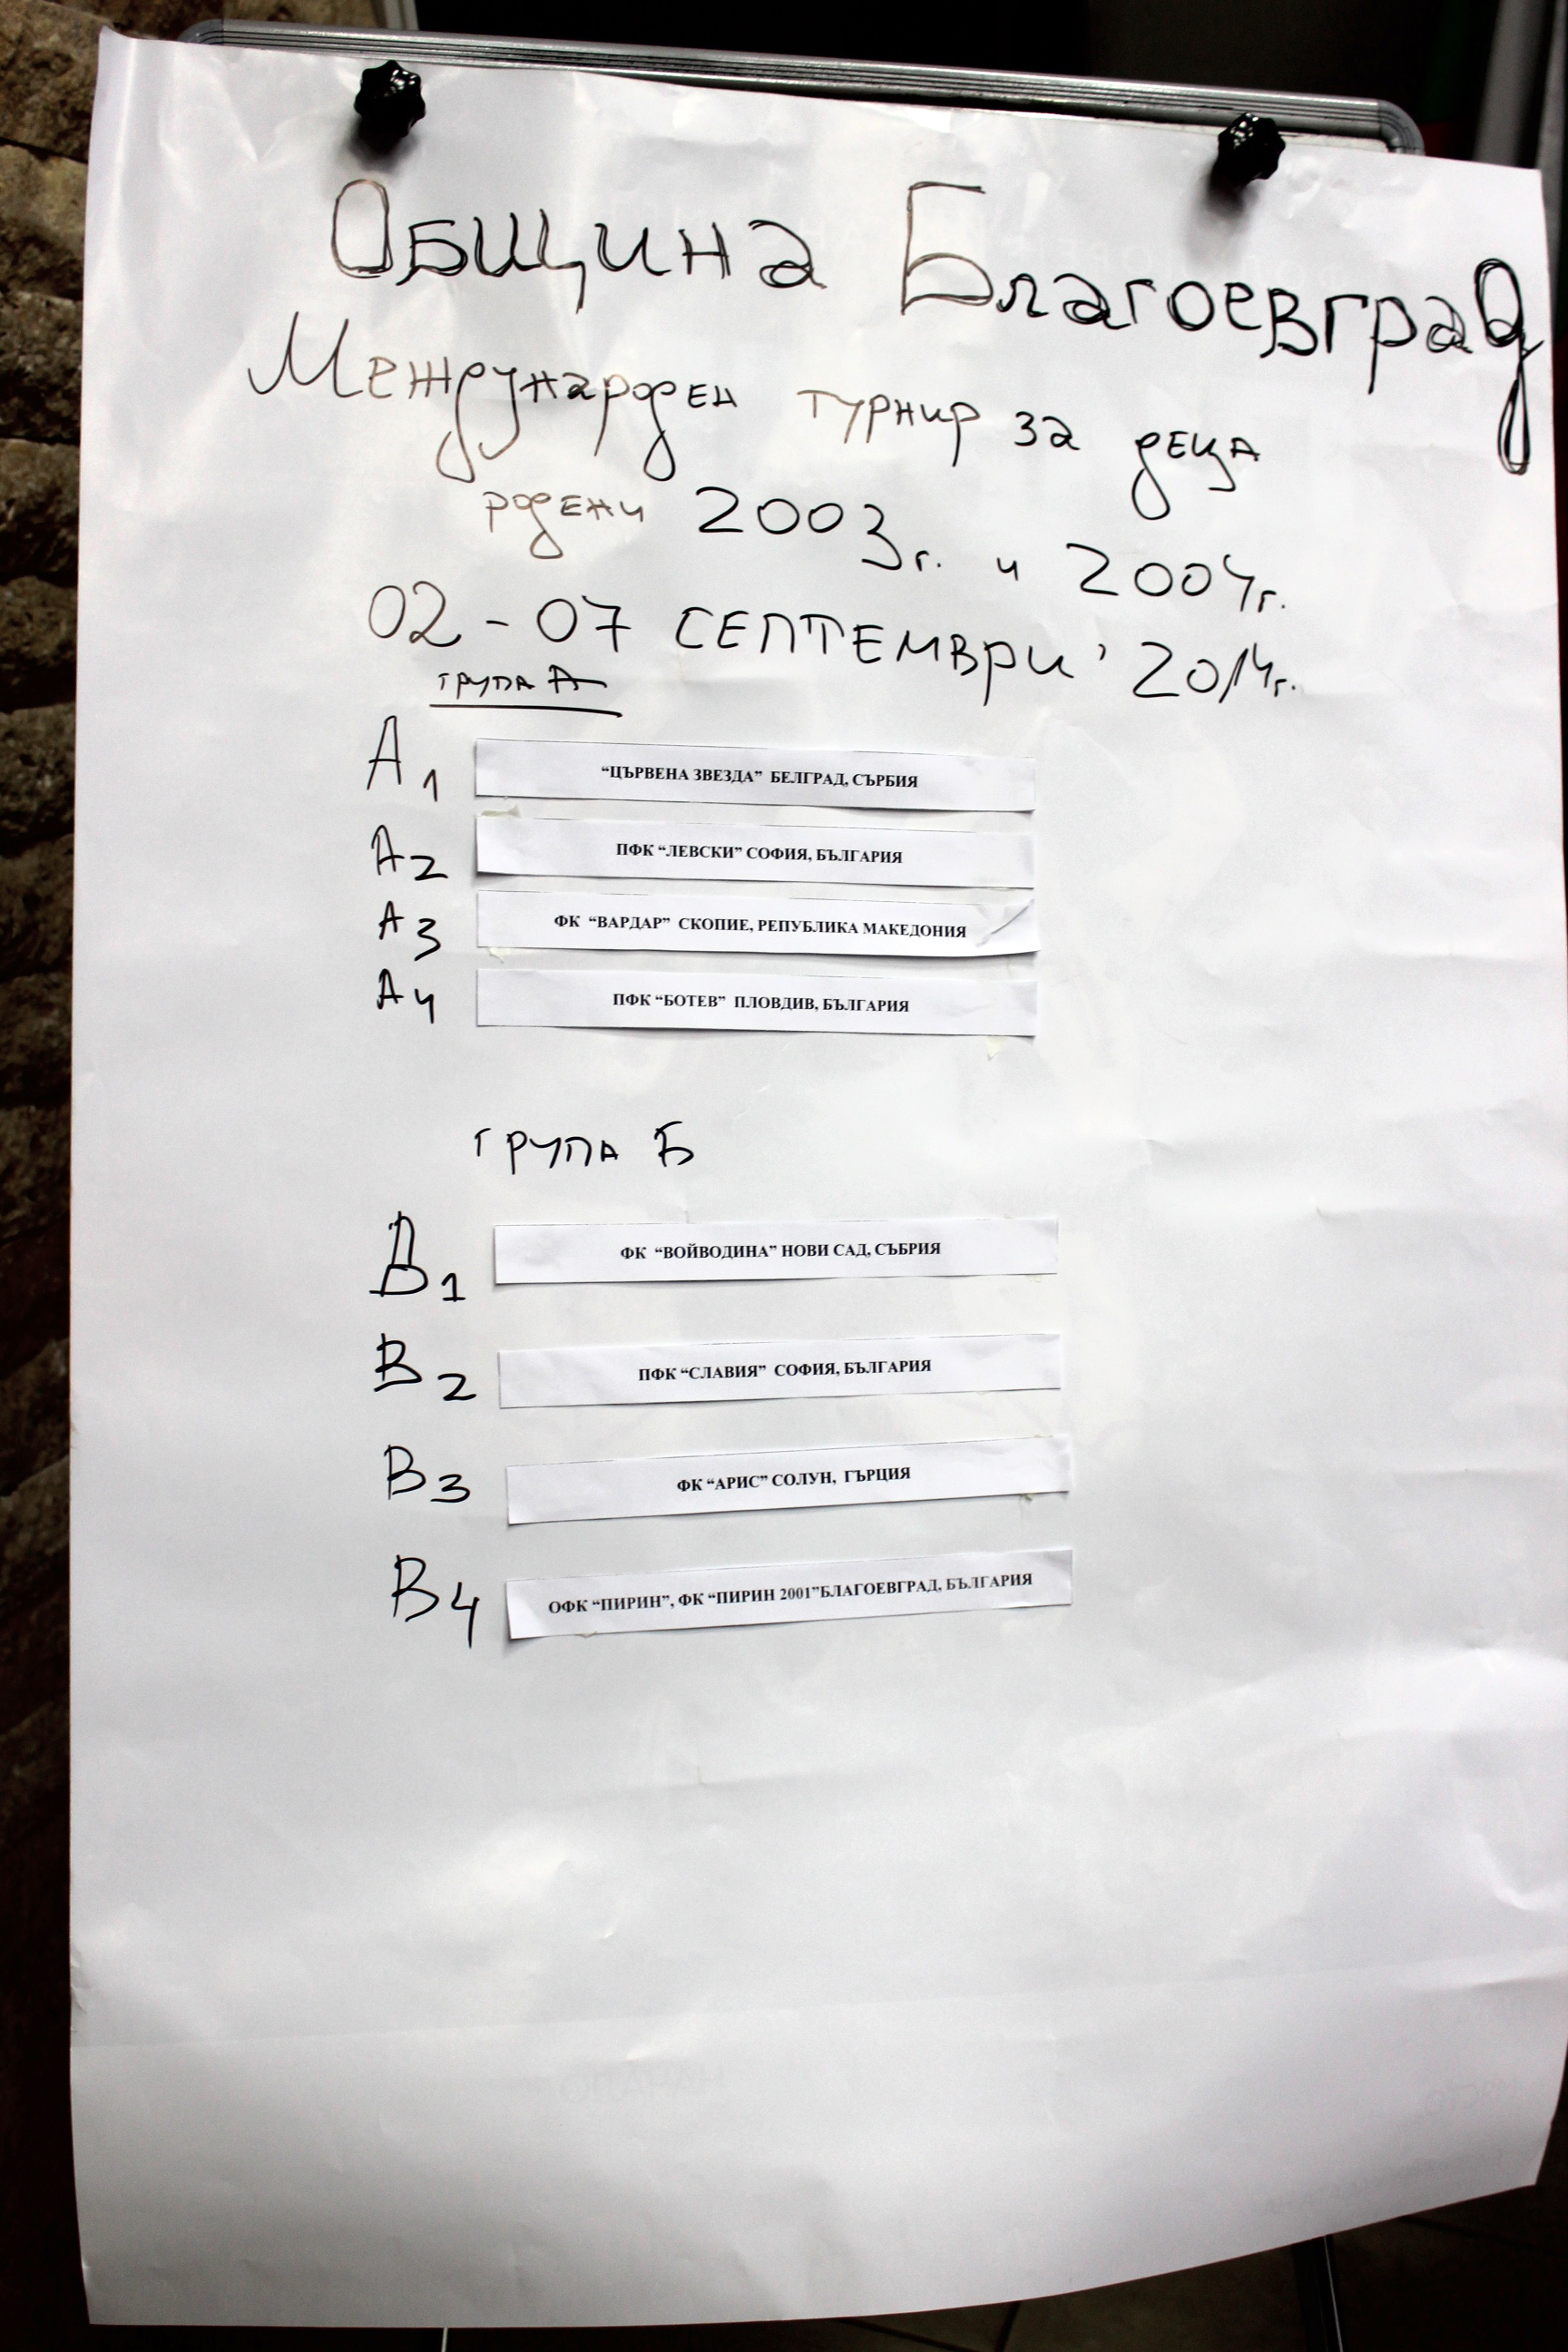 Община Благоевград
Международен турнир за деца
родени 2003г. и 2004г.
02-07 СЕПТЕМВРИ' 2014г.
ГРУПА А
А1 “ЦЪРВЕНА ЗВЕЗДА” БЕЛГРАД, СЪРБИЯ
А2 ПФК “ЛЕВСКИ” СОФИЯ, БЪЛГАРИЯ
А3 ФК “ВАРДАР” СКОПИЕ, РЕПУБЛИКА МАКЕДОНИЯ
А4 ПФК “БОТЕВ” ПЛОВДИВ, БЪЛГАРИЯ
ГРУПА Б
В1 ФК “ВОЙВОДИНА” НОВИ САД, СЪБРИЯ
В2 ПФК “СЛАВИЯ” СОФИЯ, БЪЛГАРИЯ
В3 ФК “АРИС” СОЛУН, ГЪРЦИЯ
В4 ОФК “ПИРИН”, ФК “ПИРИН 2001”БЛАГОЕВГРАД, БЪЛГАРИЯ